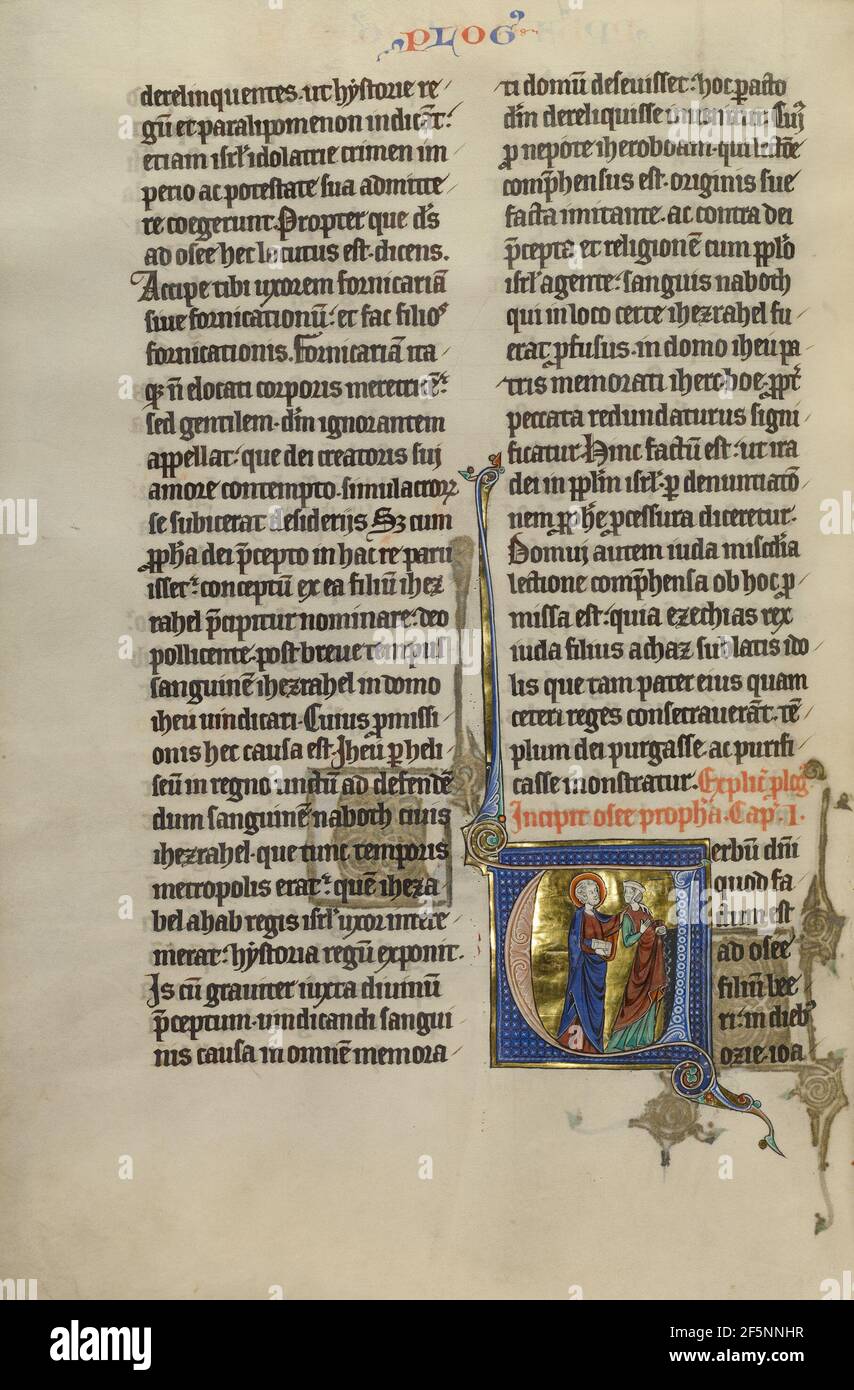 PLOG
derelinquentes. ut hystorie re
gū et paralipomenon indicāt.
etiam isrł. idolatrie crimen im
perio ac potestate sua admitte
re coegerunt. Propter que dſ
ad osee hec locutus est. dicens.
Accipe tibi uxorem fornicariā
siue fornicationū. et fac filioſ
fornicationis. Fornicariā ita
qꝫ nō elocati corporis meretricē.
sed gentilem. dm̄ ignorantem
appellat. que dei creatoris sui
amore contempto. simulacroꝝ
se subicerat desiderijs Sꝫ cum
ꝓph̄a dei p̄cepto in hac re paru
isset. conceptū ex ea filiū ihez
rahel p̄cipitur nominare. deo
pollicente. post breue tempus
sanguinē ihezrahel in domo
iheu uindicari. Cuius ꝓmissi
onis hec causa est. Iheu ꝑ heli
seū in regno unctū ad defendē
dum sanguinē naboth ciuis
ihezrahel. que tunc temporis
metropolis erat. quē iheza
bel ahab regis isrł. uxor intere
merat. hystoria regū exponit.
Is cū grauiter iuxta diuinū
p̄ceptum. uindicandi sangui
nis causa in omnē memora
ti domū deseuisset. hoc pacto
dm̄ dereliquisse
ꝓ nepote iheroboam. qui
compͥhensus est. originis sue
facta imitante. ac contra dei
p̄cepta et religionē cum ppl̄o
isrł. agente. sanguis naboth
qui in loco certe ihezrahel fu
erat ꝓfusus. in domo iheu pa
tris memorati iheroboe. ꝓpt̄
peccata redundaturus signi
ficatur. Hinc factū est. ut ira
dei in ppl̄m isrł. ꝑ denuntiatō
nem ꝓph̄e ꝓcessura diceretur.
Domui autem iuda misc̄dia
lectione compͥhensa ob hoc ꝓ
missa est. quia ezechias rex
iuda filius achaz sublatis ido
lis que tam pater eius quam
ceteri reges consecrauerāt. tē
plum dei purgasse. ac purifi
casse monstratur. Explic̄ plog̾
Incipit osee propha. Cap. I.
Verbū dn̄i
quod fa
ctum est
ad osee
filiū bee
ri. in dieb;
ozie. ioa
alamy
alamy
Image ID: 2F5NNHR
www.alamy.com